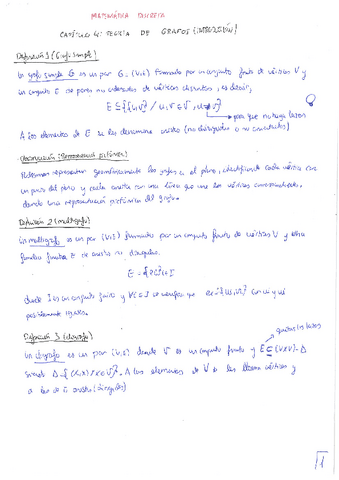 MATEMÁTICA DISCRETA
CAPÍTULO 4: TEORÍA DE GRAFOS (INTRODUCCIÓN)
Definición 1 (Grafo simple)
Un grafo simple G es un par G=(V,E) formado por un conjunto finito de vértices V y
un conjunto E de pares no ordenados de vértices distintos, es decir,
E ⊆ {{u,v} / u,v ∈ V, u≠v}
para que no haya lazos
A los elementos de E se les denomina aristas (no dirigidas o no orientadas)
Observación (Representación pictórica)
Podemos representar geométricamente los grafos en el plano, identificando cada vértice con
un punto del plano y cada arista con una línea que une los vértices correspondientes,
dando una representación pictórica del grafo.
Definición 2 (multigrafo)
Un multigrafo es un par (V,E) formado por un conjunto finito de vértices V y otra
familia finita E de aristas no dirigidas.
donde I es un conjunto finito y ∀i∈I se verifica que
posiblemente iguales.
Definición 3 (digrafo)
quitar los lazos
Un digrafo es un par (V,E) donde V es un conjunto finito y E ⊆ (V×V)-Δ
siendo Δ={(x,x)/x∈V}. A los elementos de V se les llama vértices y
a los de E aristas (dirigidas)
1